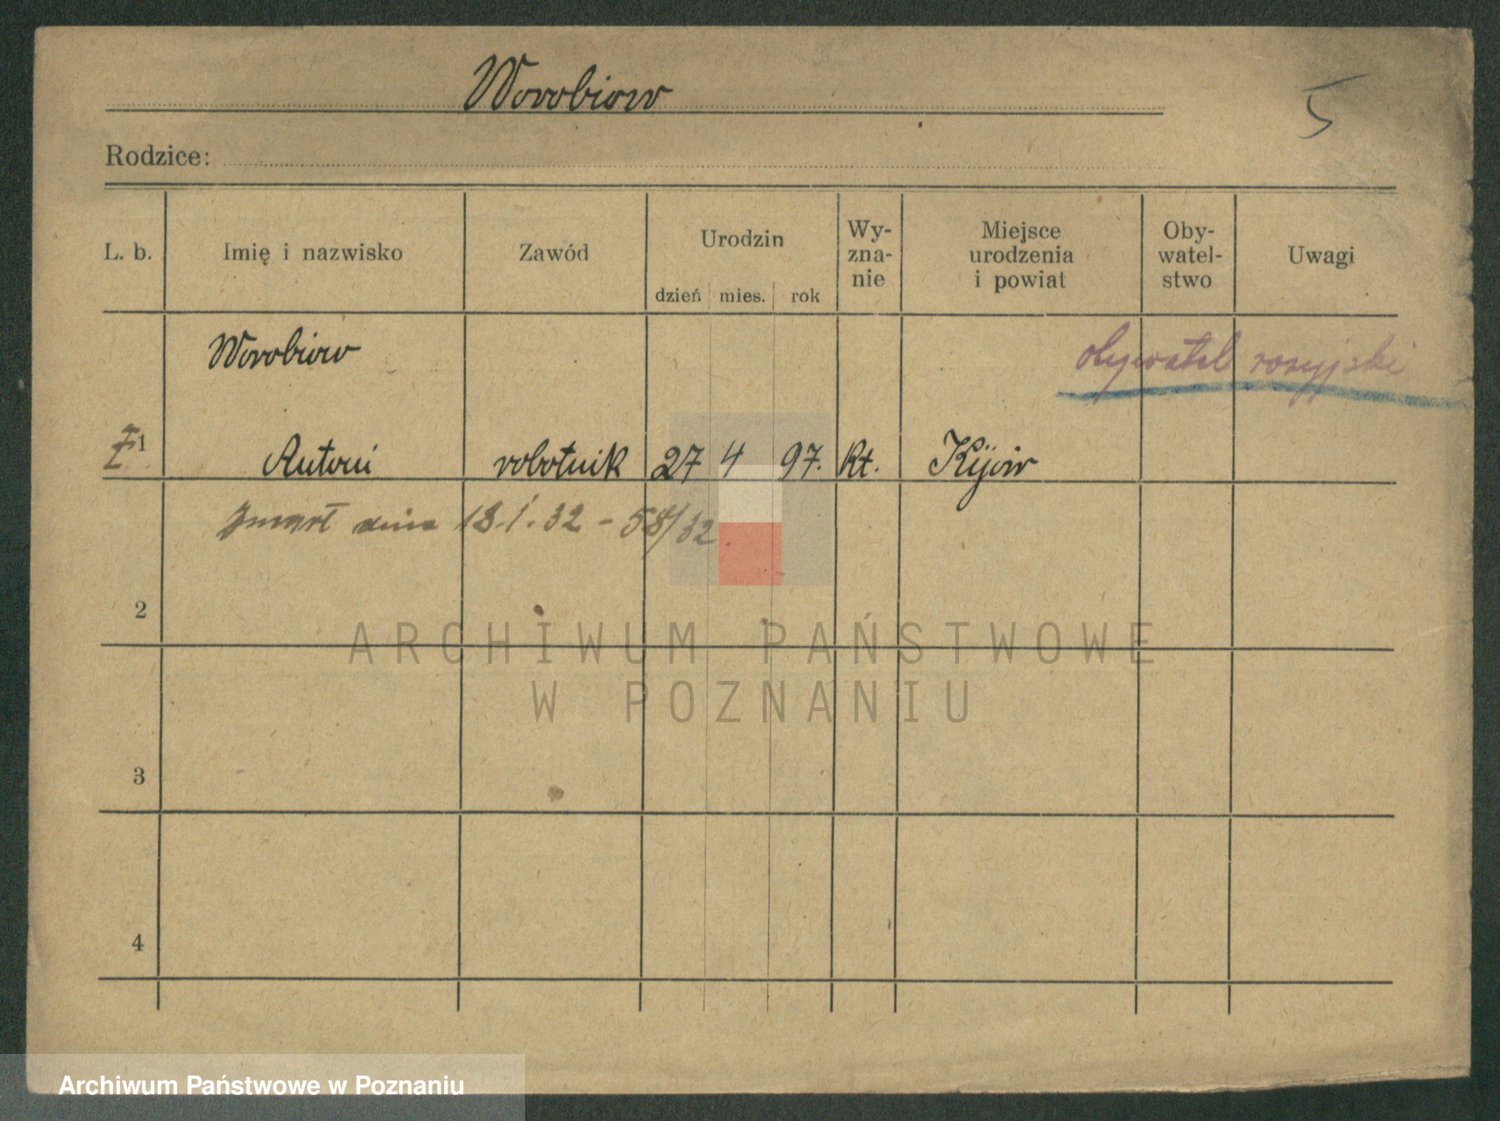 Worobiow
5
Rodzice:
L. b.
Imię i nazwisko
Zawód
Urodzin
dzień mies. rok
Wy-
zna-
nie
Miejsce
urodzenia
i powiat
Oby-
watel-
stwo
Uwagi
Worobiow
obywatel rosyjski
Ż 1 Antoni robotnik 27 4 97. Rt. Kijów
zmarł dnia 13.1.32 - 58/32.
2
ARCHIWUM PAŃSTWOWE
W POZNANIU
3
4
Archiwum Państwowe w Poznaniu